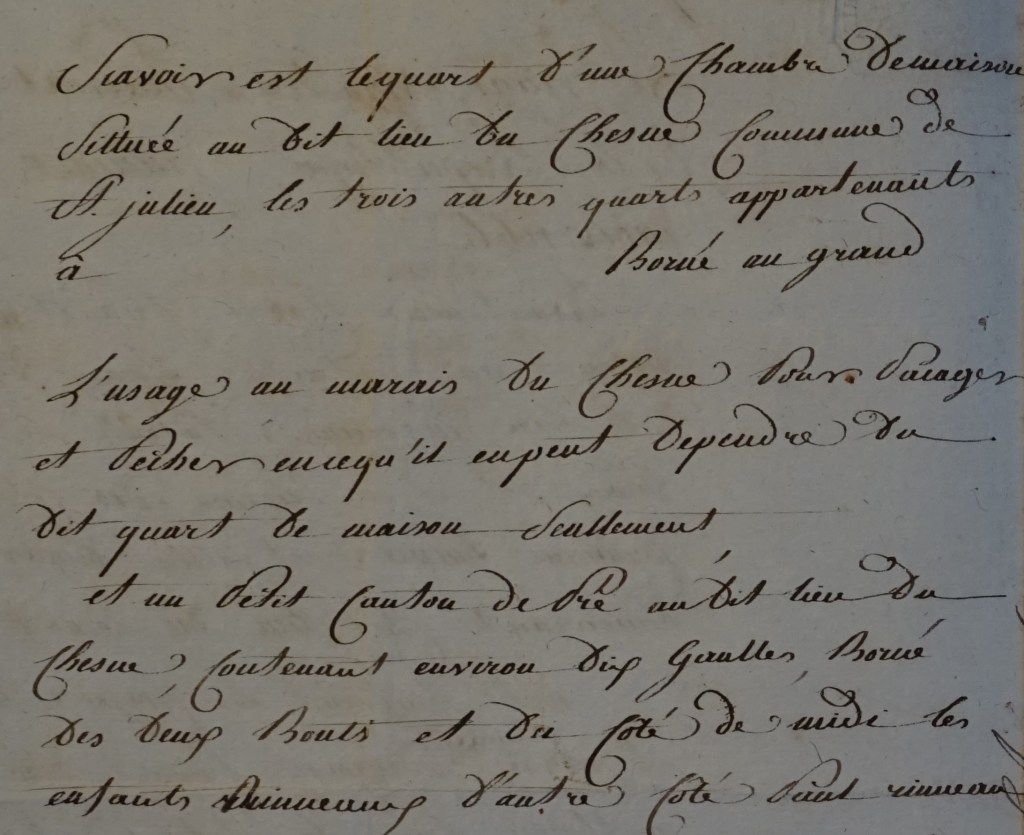 Scavoir est lequart d'une Chambre Demaison
Sittuée au Dit lieu Du Chesne Commune de
St. julien, les trois autres quarts appartenants
à Borné au grand
L'usage au marais Du Chesne Pour Pacager
et Pêcher encequ'il enpeut Dependre Du
Dit quart De maison Seullement
et un Petit Canton de Pré au Dit lieu Du
Chesne Contenant environ Dix Gaulles, Borné
Des Deux Bouts et Du Coté de midi les
enfants Rinneaux D'autre Coté Paul rinneau